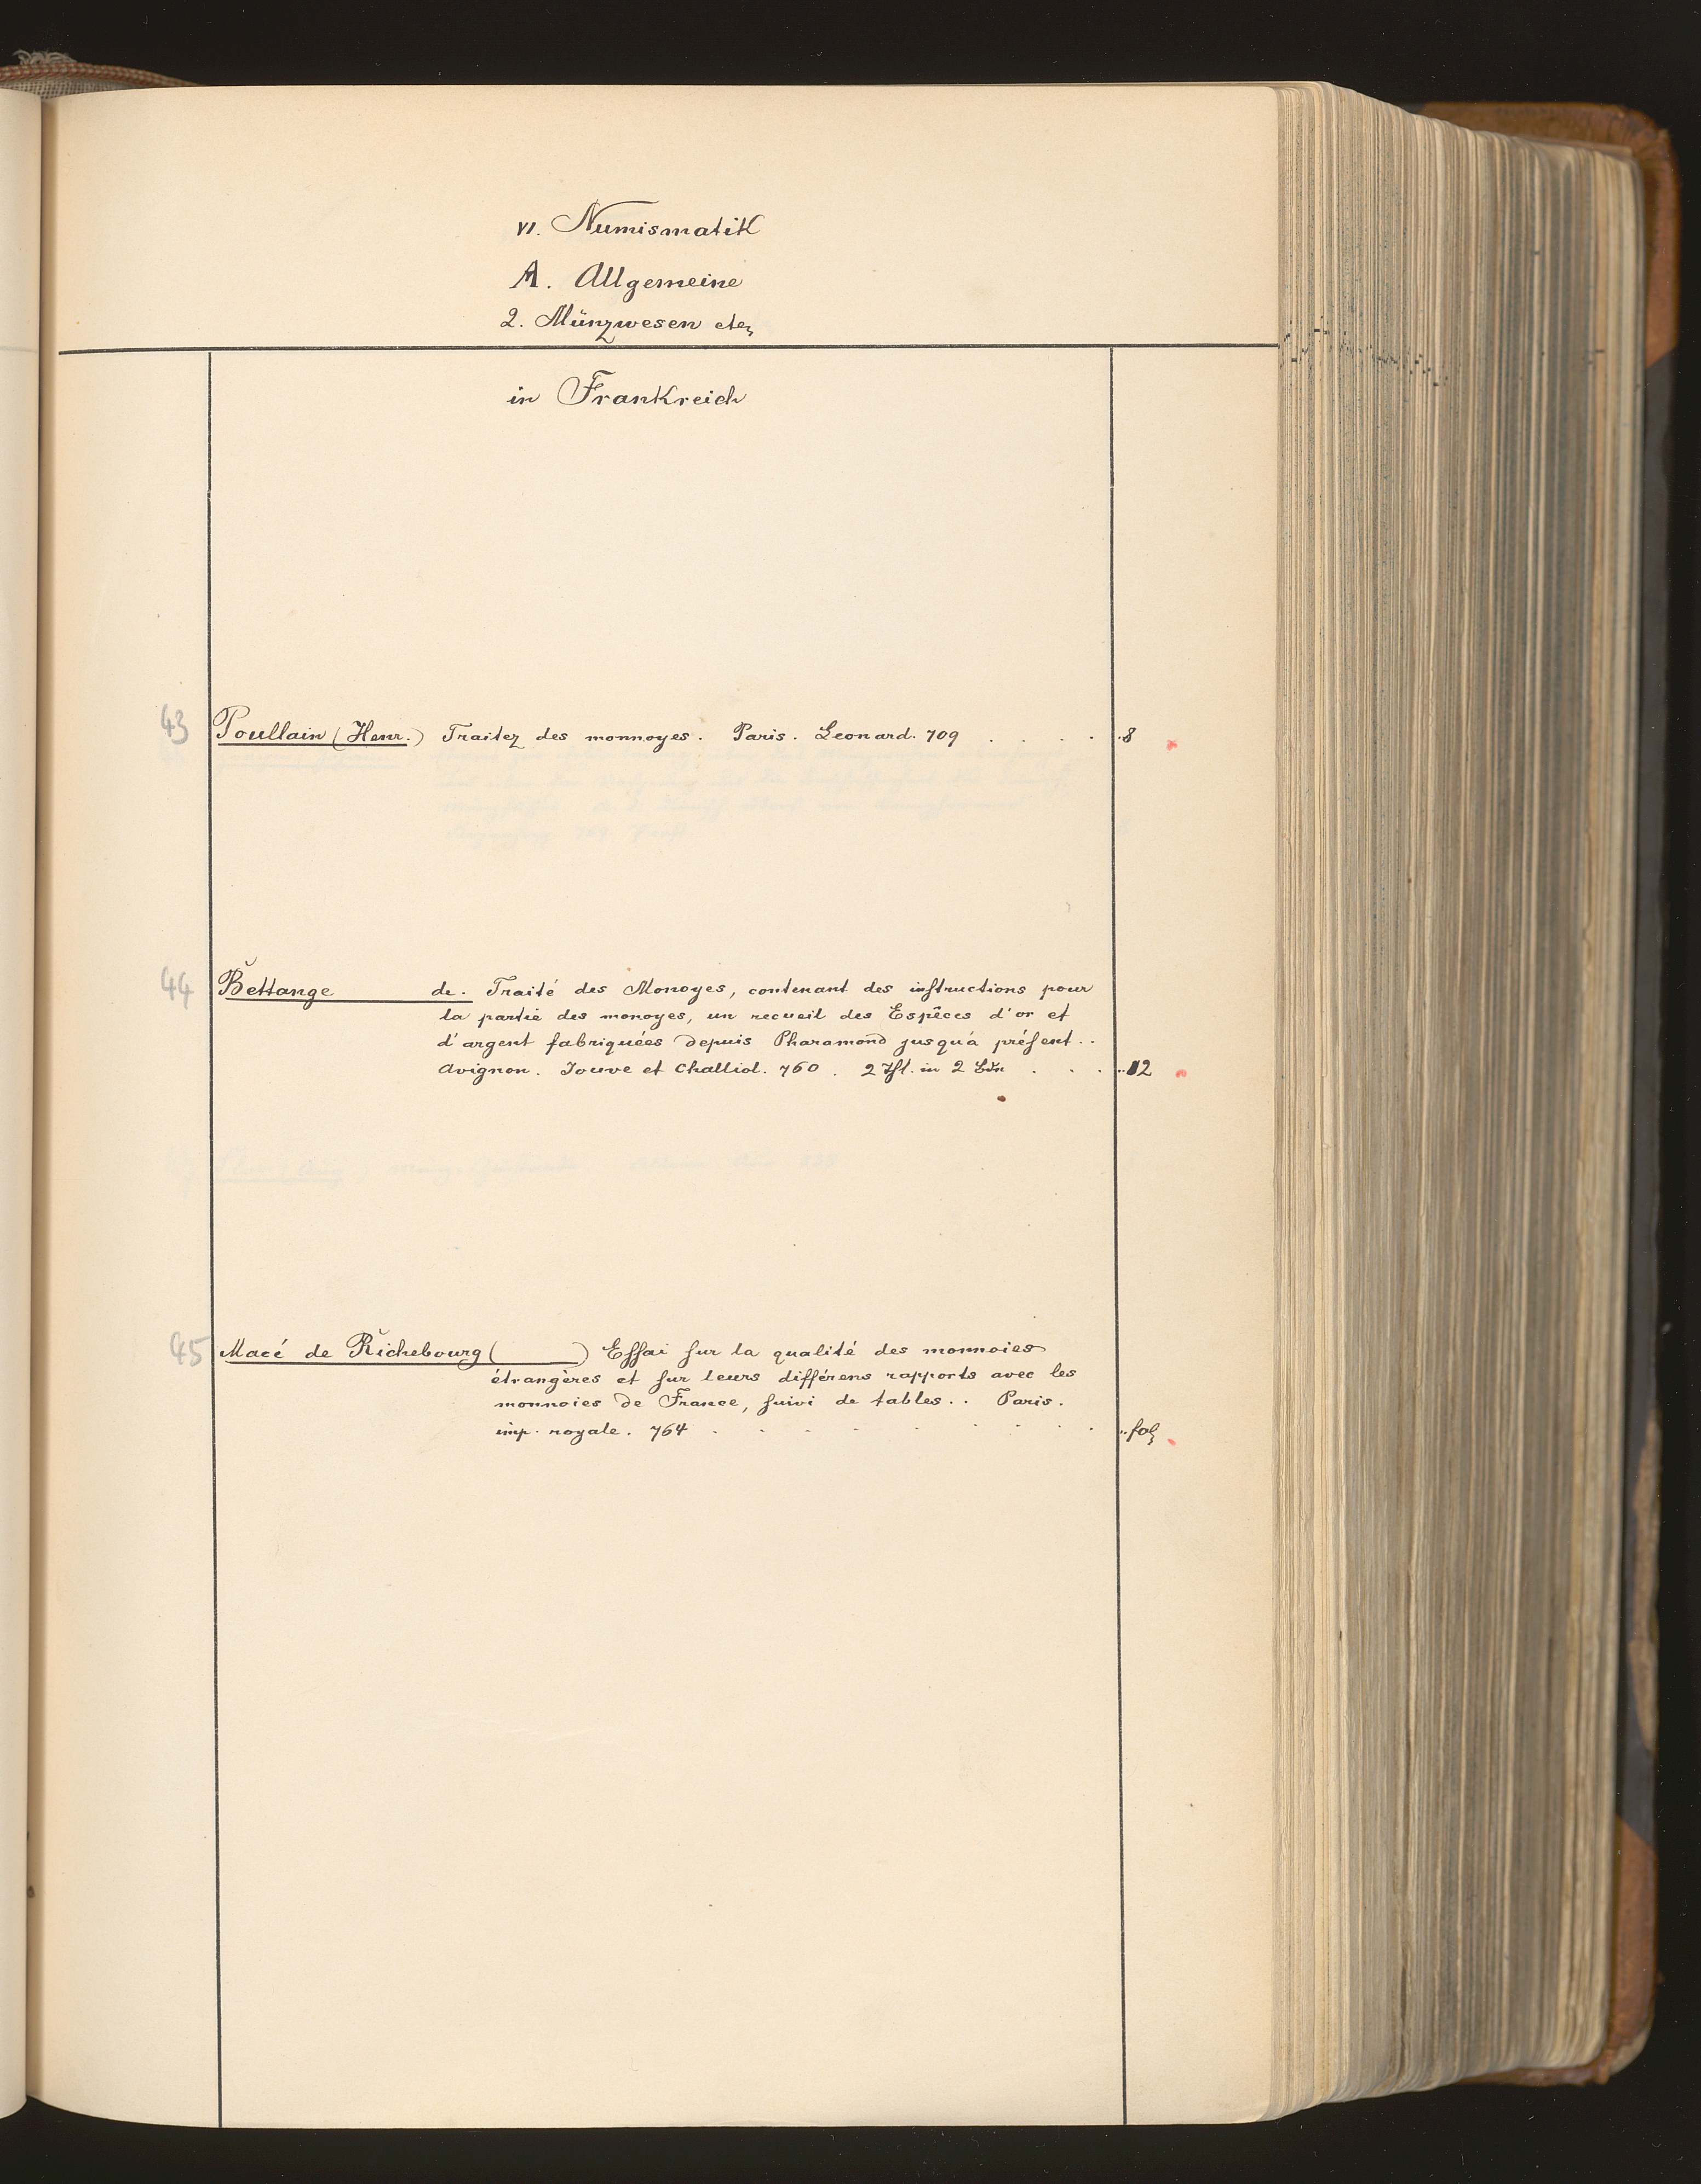 VI. Numismatik
A. Allgemeine
2. Münzwesen etc
in Frankreich
43 Poullain (Henr.) Traitez des monnoyes. Paris. Leonard. 709 . . . . 8
44 Bettange de. Traité des Monoyes, contenant des inſtructions pour
la partie des monoyes, un recueil des Espêces d'or et
d'argent fabriquées depuis Pharamond jusqu'á préſent..
Avignon. Jouve et Challiol. 760. 2 Thl. in 2 Bdn . . . . 12
45 Macé de Richebourg ( ) Eſſai ſur la qualité des monnoies
étrangères et ſur leurs différens rapports avec les
monnoies de France, ſuivi de tables.. Paris.
imp. royale. 764 . . . . . . . . . fol